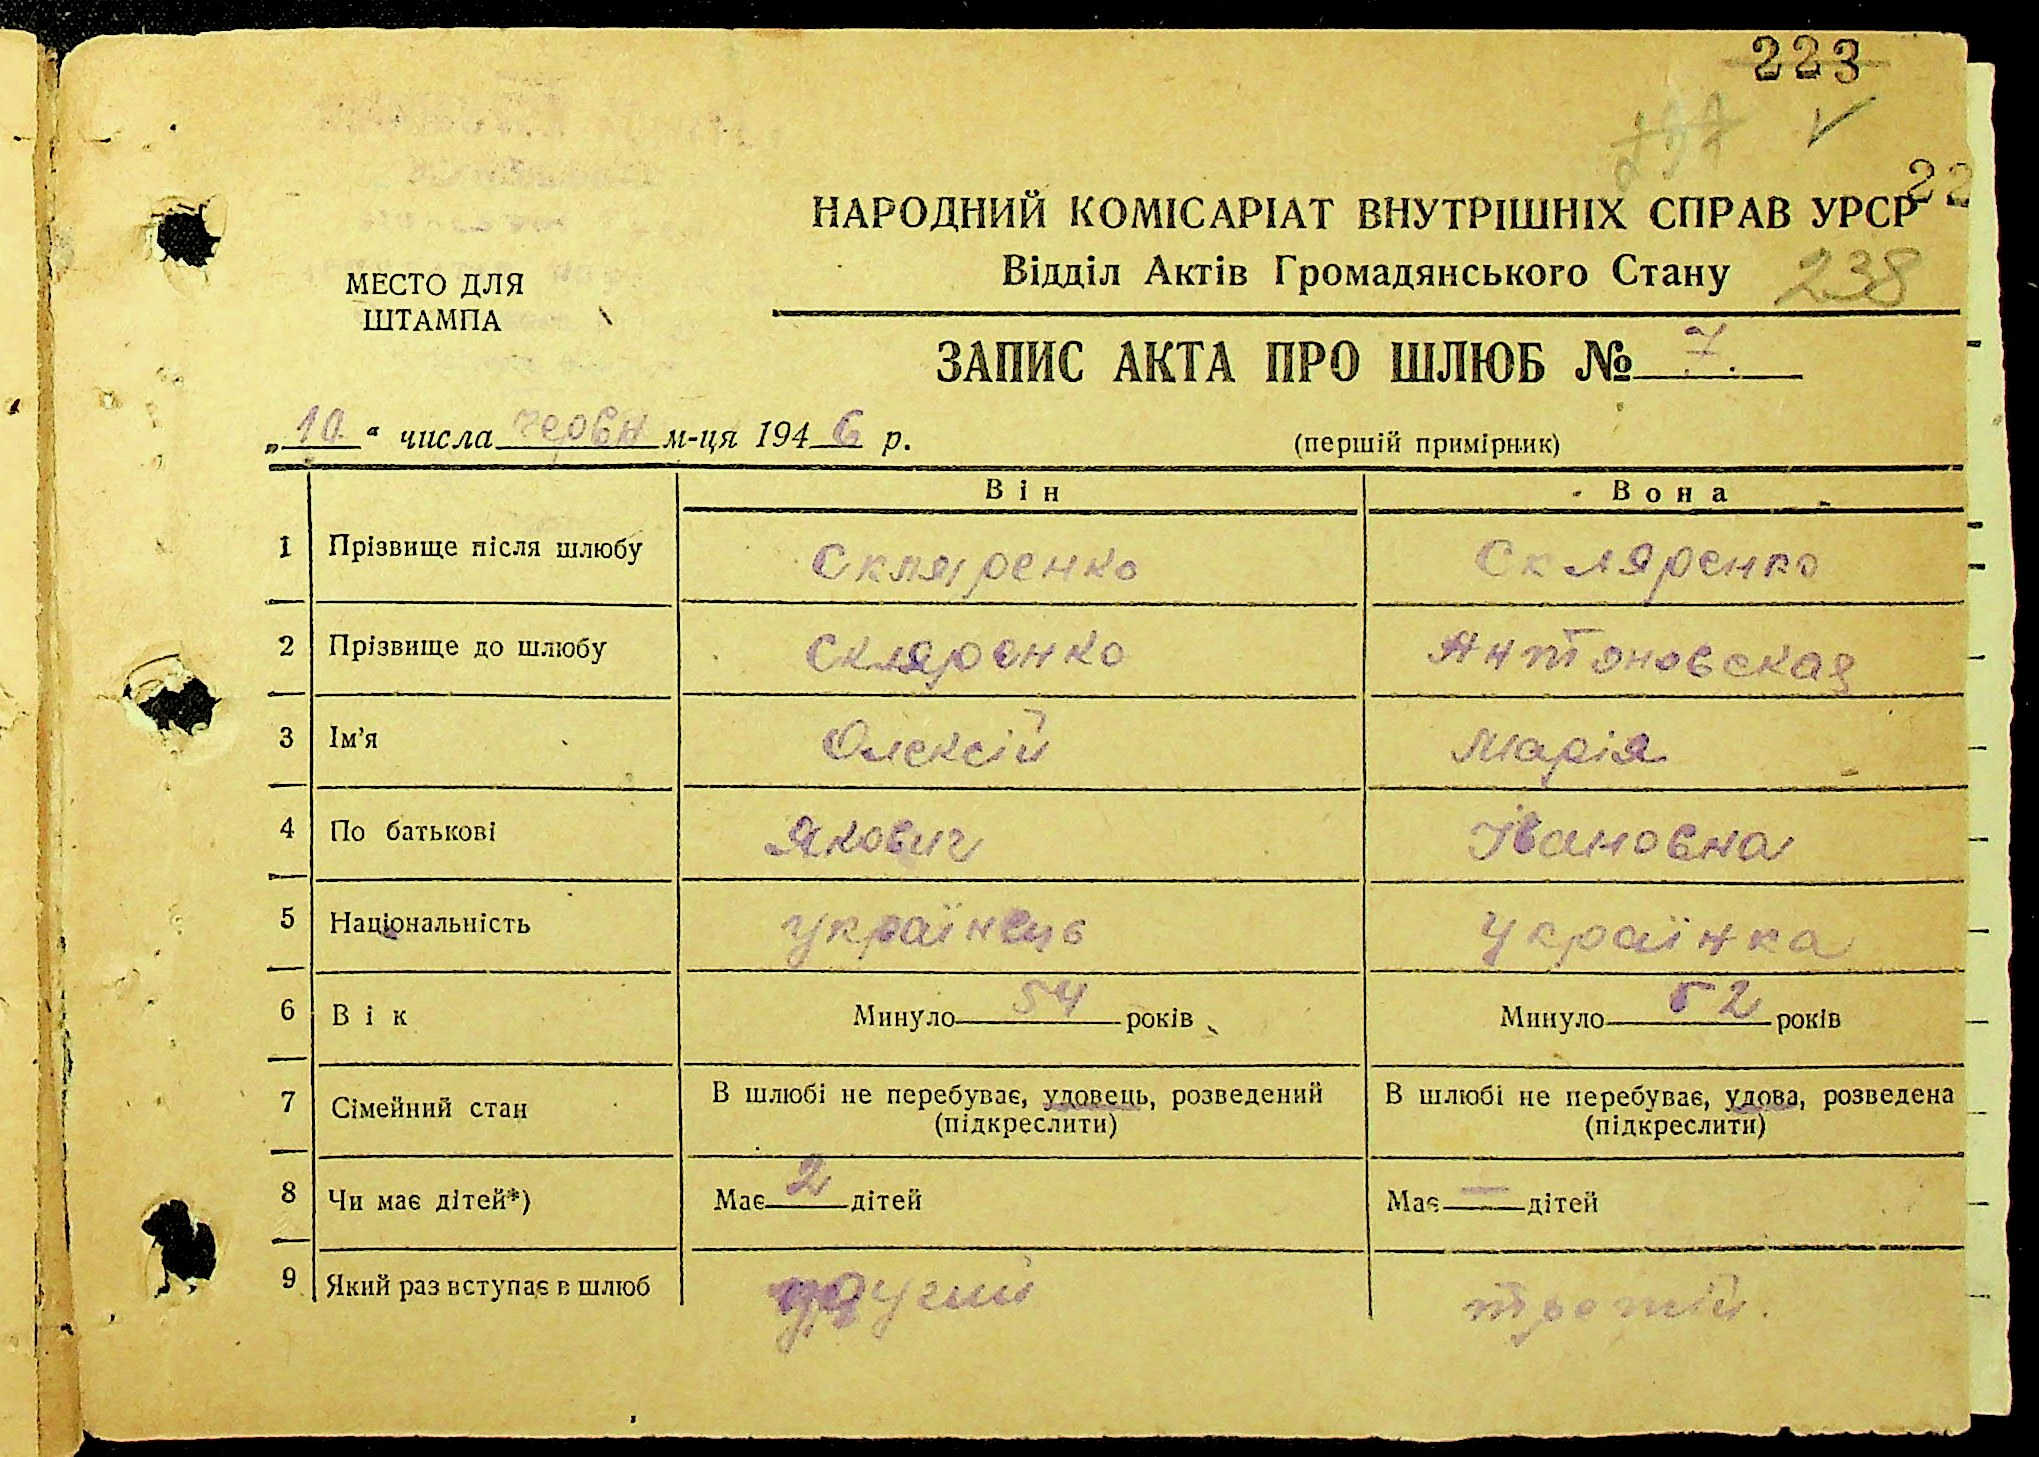 223
238
22
НАРОДНИЙ КОМІСАРІАТ ВНУТРІШНІХ СПРАВ УРСР
Відділ Актів Громадянського Стану
МЕСТО ДЛЯ
ШТАМПА
ЗАПИС АКТА ПРО ШЛЮБ № 7.
„10“ числа червн м-ця 1946 р.
(першій примірник)
Він Вона
1 Прізвище після шлюбу Скляренко Скляренко
2 Прізвище до шлюбу Скляренко Антоновская
3 Ім’я Олексій Марія
4 По батькові Якович Івановна
5 Національність українець українка
6 Вік Минуло 54 років Минуло 52 років
7 Сімейний стан В шлюбі не перебуває, удовець, розведений В шлюбі не перебуває, удова, розведена
(підкреслити) (підкреслити)
8 Чи має дітей*) Має 2 дітей Має — дітей
9 Який раз вступає в шлюб другий третій.